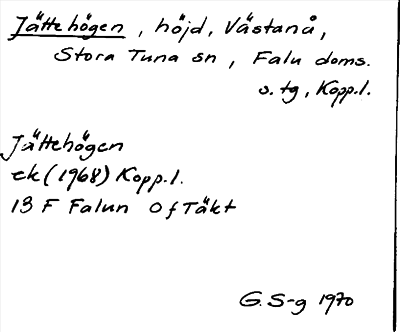 Jättehögen, höjd, Västanå,
Stora Tuna sn, Falu doms.
s. tg, Kopp.l.
Jättehögen
ek (1968) Kopp.l.
13 F Falun Of Täkt
G. S-g 1970